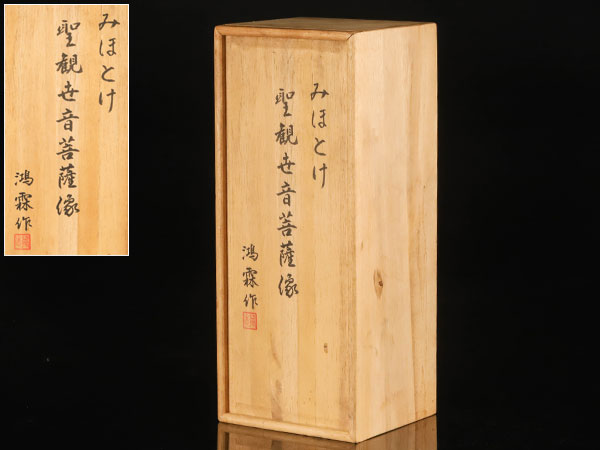 みほとけ
聖観世音菩薩像
鴻霖作
みほとけ
聖観世音菩薩像
鴻霖作